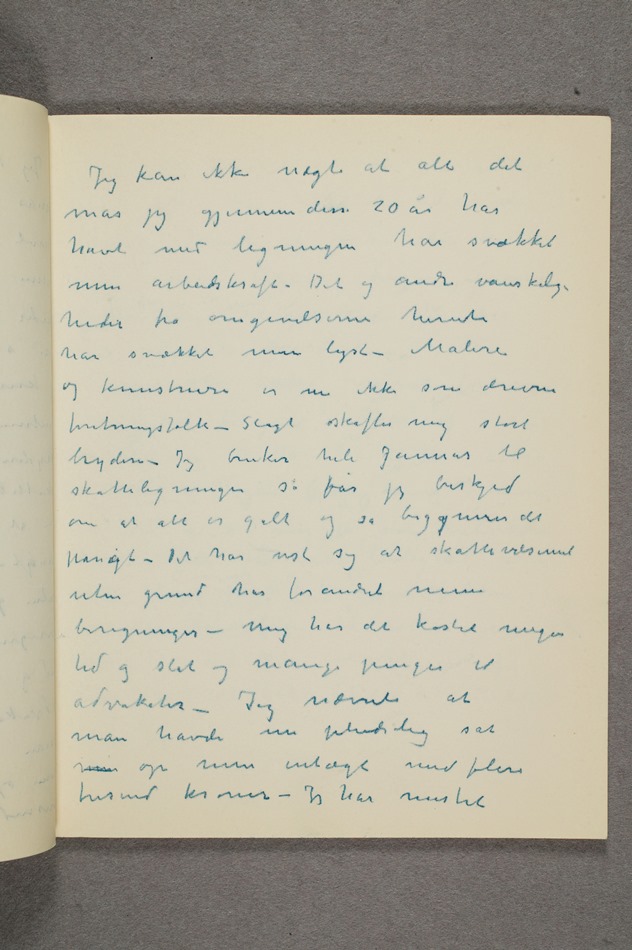 Jeg kan ikke nægte at alt det
mas jeg gjennem disse 20 år har
havt med ligningen har svækket
min arbeidskraft – Det og andre vanskelig-
heder fra omgivelserne herude
har svækket min lyst – Malere
og kunstnere er nu ikke som drevne
fortningsfolk – Sligt skaffer mig stort
bryderi – Jeg bruker hele Januar til
skatteligningen så får jeg beskjed
om at alt er galt og så begynner det
påny igt – Det har vist sig at skattevæsenet
uten grund har forandret mine
beregninger – Mig har det kostet megen
tid og slit og mange penger til
advokater – Jeg nævnte at
man havde nu pludselig sat
op min indtægt med flere
tusind kroner – Jeg har mistet